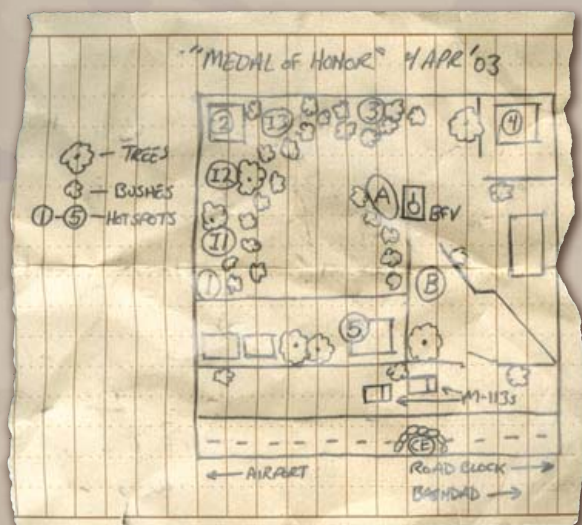 "MEDAL OF HONOR" 4 APR '03
TREES
BUSHES
①-⑤ HOTSPOTS
2
I3
3
4
I2
A
BFV
I1
1
B
5
M-113s
CE
← AIRPORT
ROAD BLOCK →
BAGHDAD →